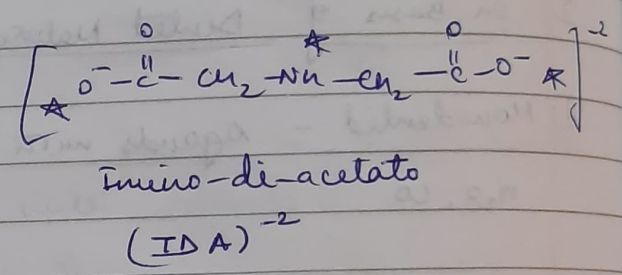 O O -2
O⁻-C-CH₂-NH-CH₂-C-O⁻
Imino-di-acetato
(IDA)⁻²